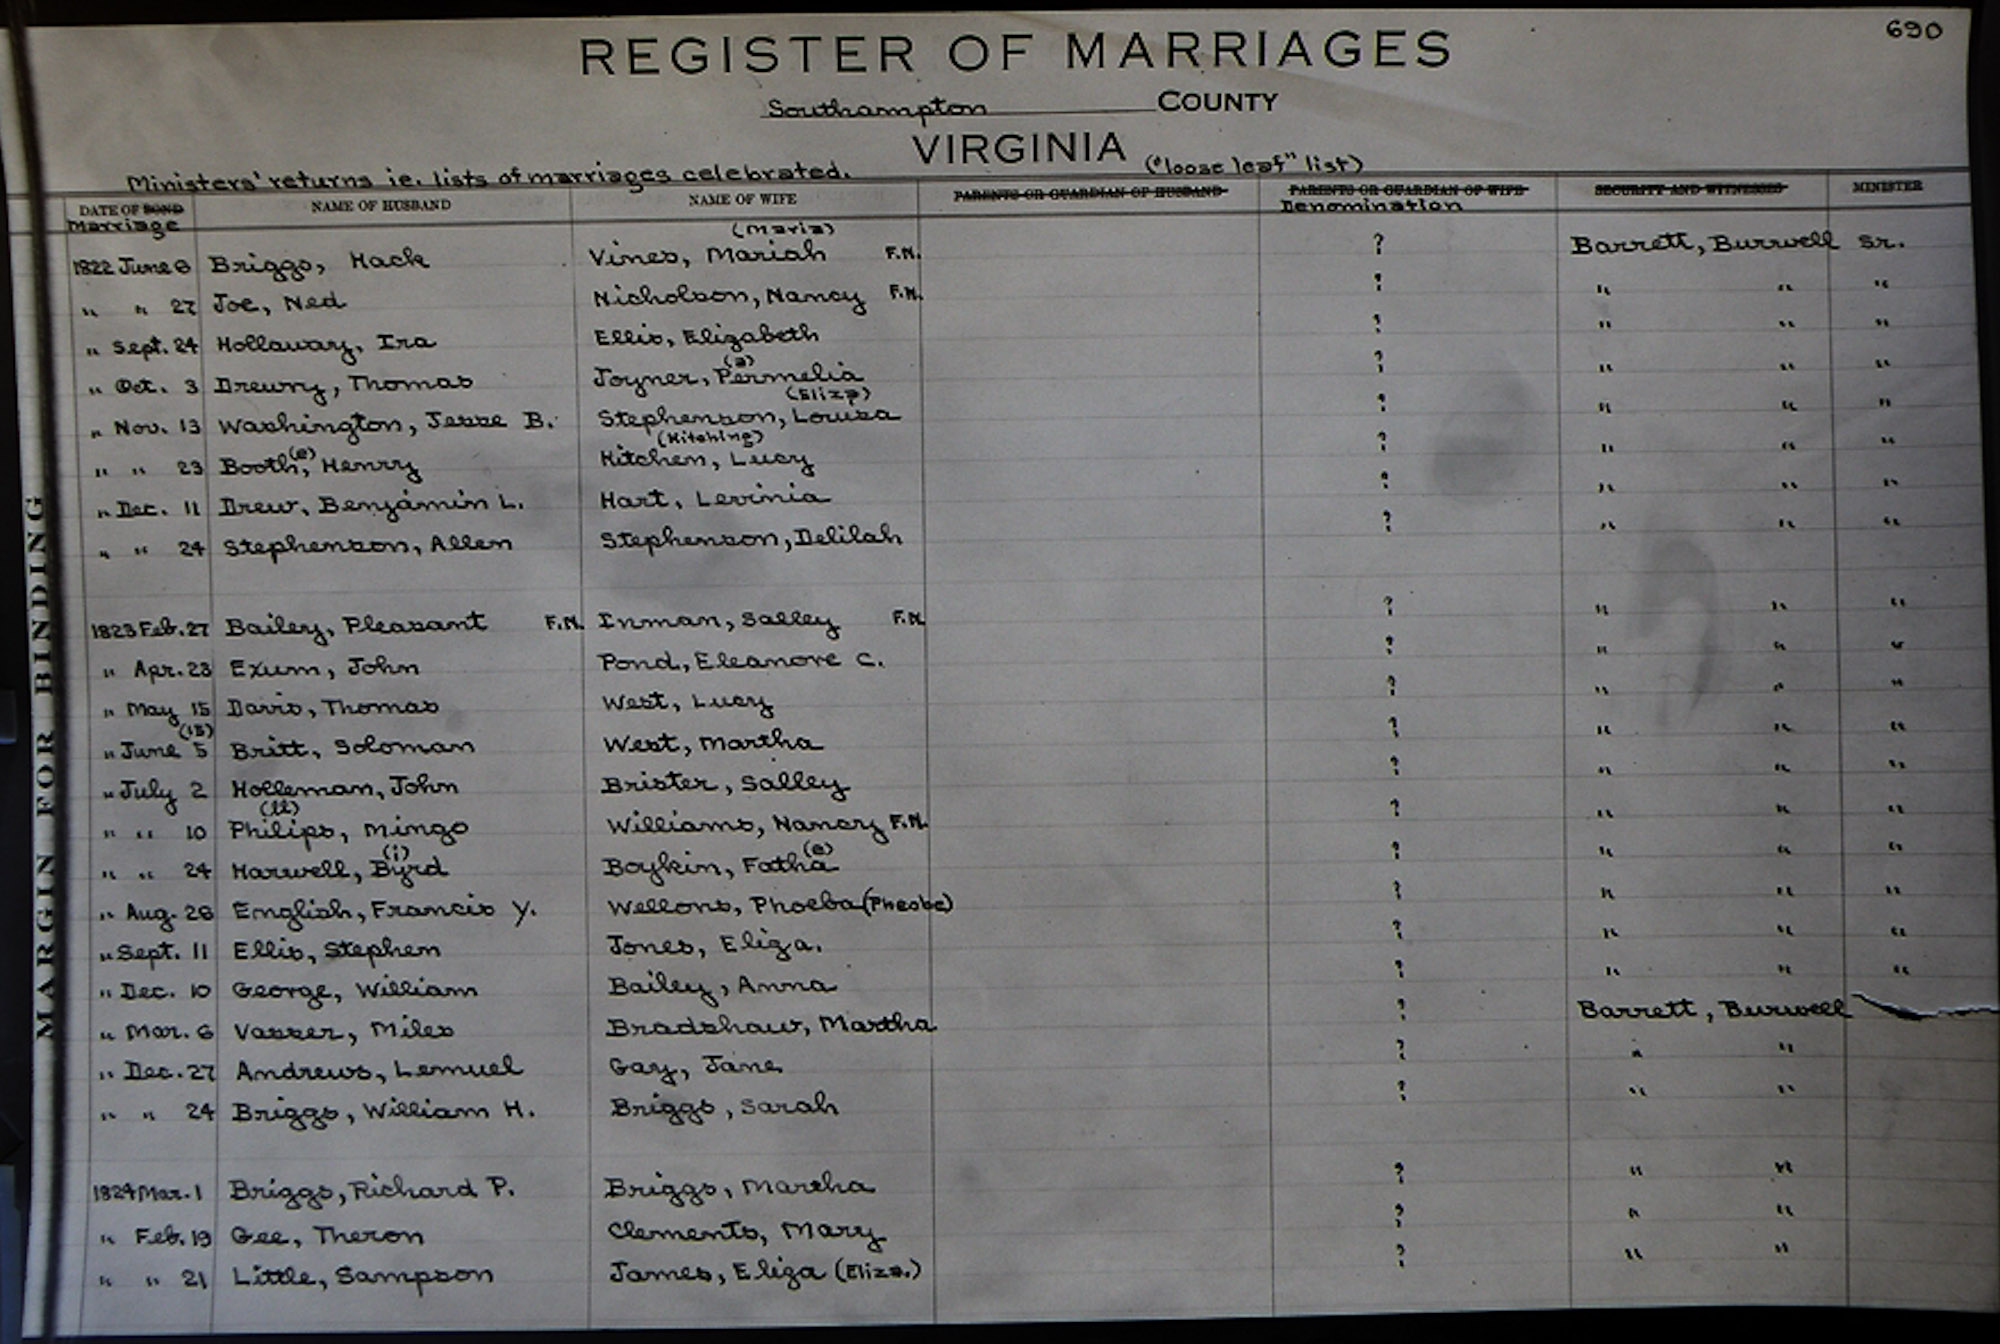 690
REGISTER OF MARRIAGES
Southampton COUNTY
VIRGINIA ("loose leaf" list)
Ministers' returns ie. lists of marriages celebrated.
DATE OF BOND NAME OF HUSBAND NAME OF WIFE PARENTS OR GUARDIAN OF HUSBAND PARENTS OR GUARDIAN OF WIFE SECURITY AND WITNESSES MINISTER
Marriage Denomination
(Maria)
1822 June 6 Briggs, Hack Vines, Mariah F.N. ? Barrett, Burwell Sr.
" " 27 Joe, Ned Nicholson, Nancy F.N. ? " " "
" Sept. 24 Hollaway, Ira Ellis, Elizabeth ? " " "
(a)
" Oct. 3 Drewry, Thomas Joyner, Permelia ? " " "
(Eliza)
" Nov. 13 Washington, Jesse B. Stephenson, Louiza ? " " "
(e) (Kitching)
" " 23 Booth, Henry Kitchen, Lucy ? " " "
" Dec. 11 Drew, Benjamin L. Hart, Levinia ? " " "
" " 24 Stephenson, Allen Stephenson, Delilah ? " " "
1823 Feb. 27 Bailey, Pleasant F.N. Inman, Salley F.N. ? " " "
" Apr. 23 Exum, John Pond, Eleanore C. ? " " "
" May 15 Davis, Thomas West, Lucy ? " " "
(15)
" June 5 Britt, Soloman West, Martha ? " " "
" July 2 Holleman, John Brister, Salley ? " " "
(ll)
" " 10 Philips, Mingo Williams, Nancy F.N. ? " " "
(i) (e)
" " 24 Harwell, Byrd Boykin, Fatha ? " " "
" Aug. 28 English, Francis Y. Wellons, Phoeba (Pheobe) ? " " "
" Sept. 11 Ellis, Stephen Jones, Eliza. ? " " "
" Dec. 10 George, William Bailey, Anna ? " " "
" Mar. 6 Vasser, Miles Bradshaw, Martha ? Barrett, Burwell
" Dec. 27 Andrews, Lemuel Gay, Jane ? " "
" " 24 Briggs, William H. Briggs, Sarah ? " "
1824 Mar. 1 Briggs, Richard P. Briggs, Martha ? " "
" Feb. 19 Gee, Theron Clements, Mary ? " "
" " 21 Little, Sampson James, Eliza (Eliza.) ? " "
MARGIN FOR BINDING